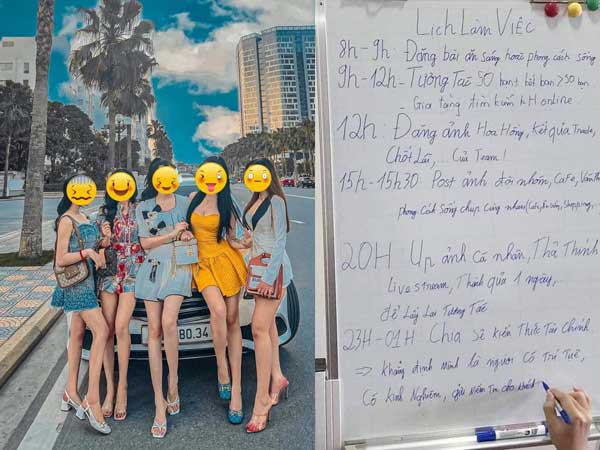 80.34
Lịch Làm Việc
8h-9h: Đăng bài ăn sáng hoặc phong cách sống
9h-12h- Tương Tác 50 kết bạn >50 bạn
- Gia tăng tìm kiếm KH online
12h: Đăng ảnh Hoa Hồng, kết quả Trade,
Chốt Lãi, ... Của Team!
15h-15h30: Post ảnh đội nhóm, Cafe,
phong cách sống chụp cùng nhau (Cafe, ăn uống, shopping,
20H Up ảnh cá nhân, Thả Thính
Live stream, Thành quả 1 ngày,
để Lấy Lại Tương Tác
23H-01H Chia sẻ kiến Thức Tài Chính
⇒ Khẳng định Mình là người Có Trí Tuệ,
Có kinh Nghiệm, gửi niềm Tin cho khách